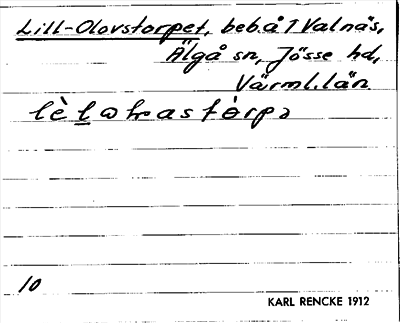 Lill-Olovstorpet, beb. å 1 Valnäs,
Älgå sn, Jösse hd,
Värml. län
10
KARL RENCKE 1912